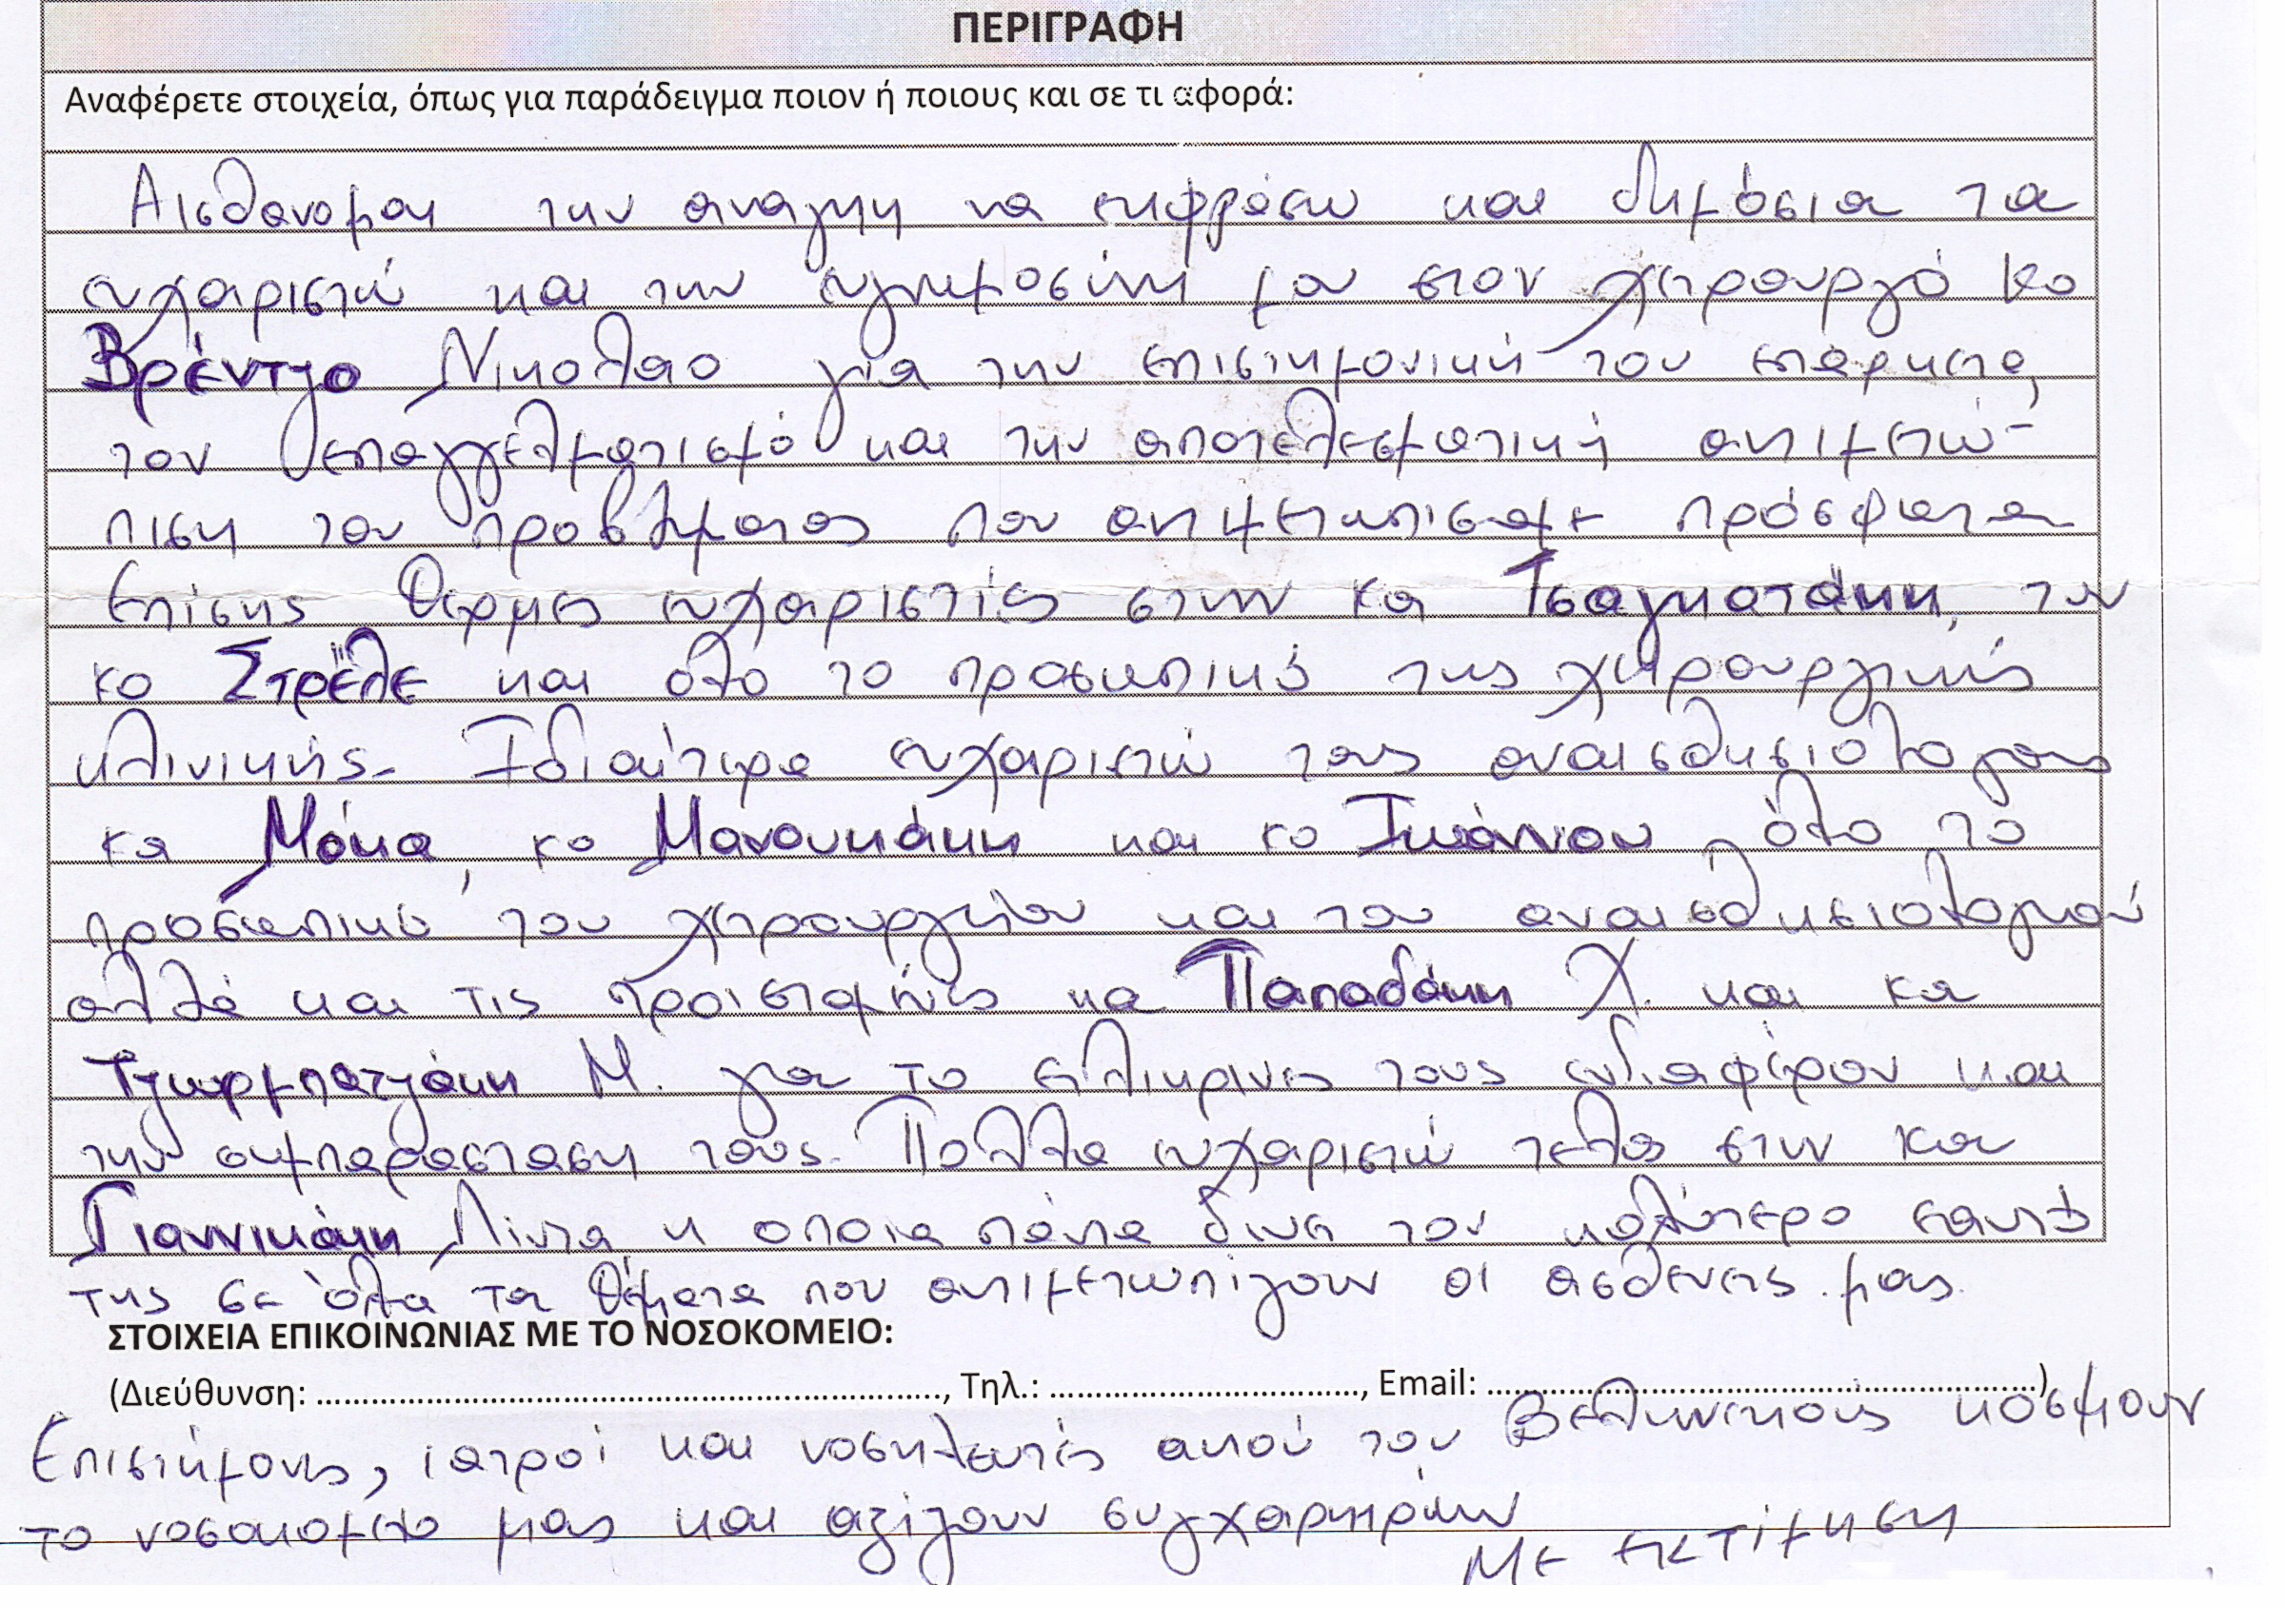 ΠΕΡΙΓΡΑΦΗ
Αναφέρετε στοιχεία, όπως για παράδειγμα ποιον ή ποιους και σε τι αφορά:
Αισθανομαι την αναγκη να εκφράσω και δημόσια τα
ευχαριστώ και την ευγνωμοσύνη μου στον χειρουργό κο
Βρέντζο Νικολαο για την επιστημονική του επαρκεια,
τον επαγγελματισμό και την αποτελεσματική αντιμετώ-
πιση του προβλήματος που αντιμετωπισαμε πρόσφατα
Επίσης θερμες ευχαριστίες στην κα Τσαγκατάκη, τον
κο Στρέλε και όλο το προσωπικό της χειρουργικής
κλινικής. Ιδιαίτερα ευχαριστώ τους αναισθησιολογους
κα Μόκα, κο Μανουκάκη και κο Ιωάννου, όλο το
προσωπικό του χειρουργείου και του αναισθησιολογικού
αλλά και τις προισταμένες κα Παπαδάκη Χ. και κα
Τζωρμπατζάκη Μ. για το ειλικρινες τους ενδιαφέρον και
την συμπαρασταση τους. Πολλα ευχαριστώ τελος στην κα
Γιαννικάκη Λίντα η οποια πάντα δινει τον καλύτερο εαυτό
της σε όλα τα θέματα που αντιμετωπίζουν οι ασθενεις μας.
ΣΤΟΙΧΕΙΑ ΕΠΙΚΟΙΝΩΝΙΑΣ ΜΕ ΤΟ ΝΟΣΟΚΟΜΕΙΟ:
(Διεύθυνση: ..............................., Τηλ.: ..............................., Email: ...............................)
Επιστήμονες, ιατροί και νοσηλευτές αυτού του βεληνεκους κοσμουν
το νοσοκομείο μας και αξίζουν συγχαρητηρίων
Με εκτίμηση